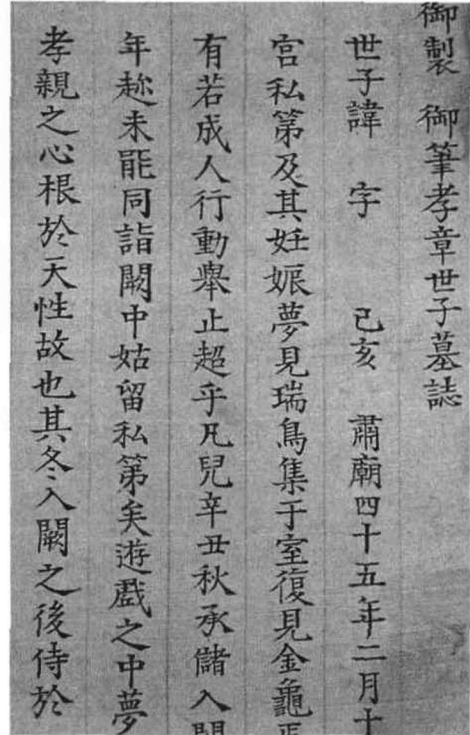 御製 御筆孝章世子墓誌
世子諱 字 己亥 肅廟四十五年二月十
宮私第及其妊娠夢見瑞鳥集于室復見金龜
有若成人行動擧止超乎凡兒辛丑秋承儲入闕
年趂未能同詣闕中姑留私第矣遊戱之中夢
孝親之心根於天性故也其冬入闕之後侍於